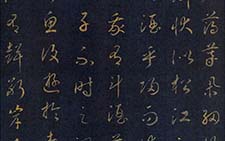 薄暮舉網
狀似松江
酒乎歸而
我有斗酒
子不時之
魚復遊於
有聲斷岸